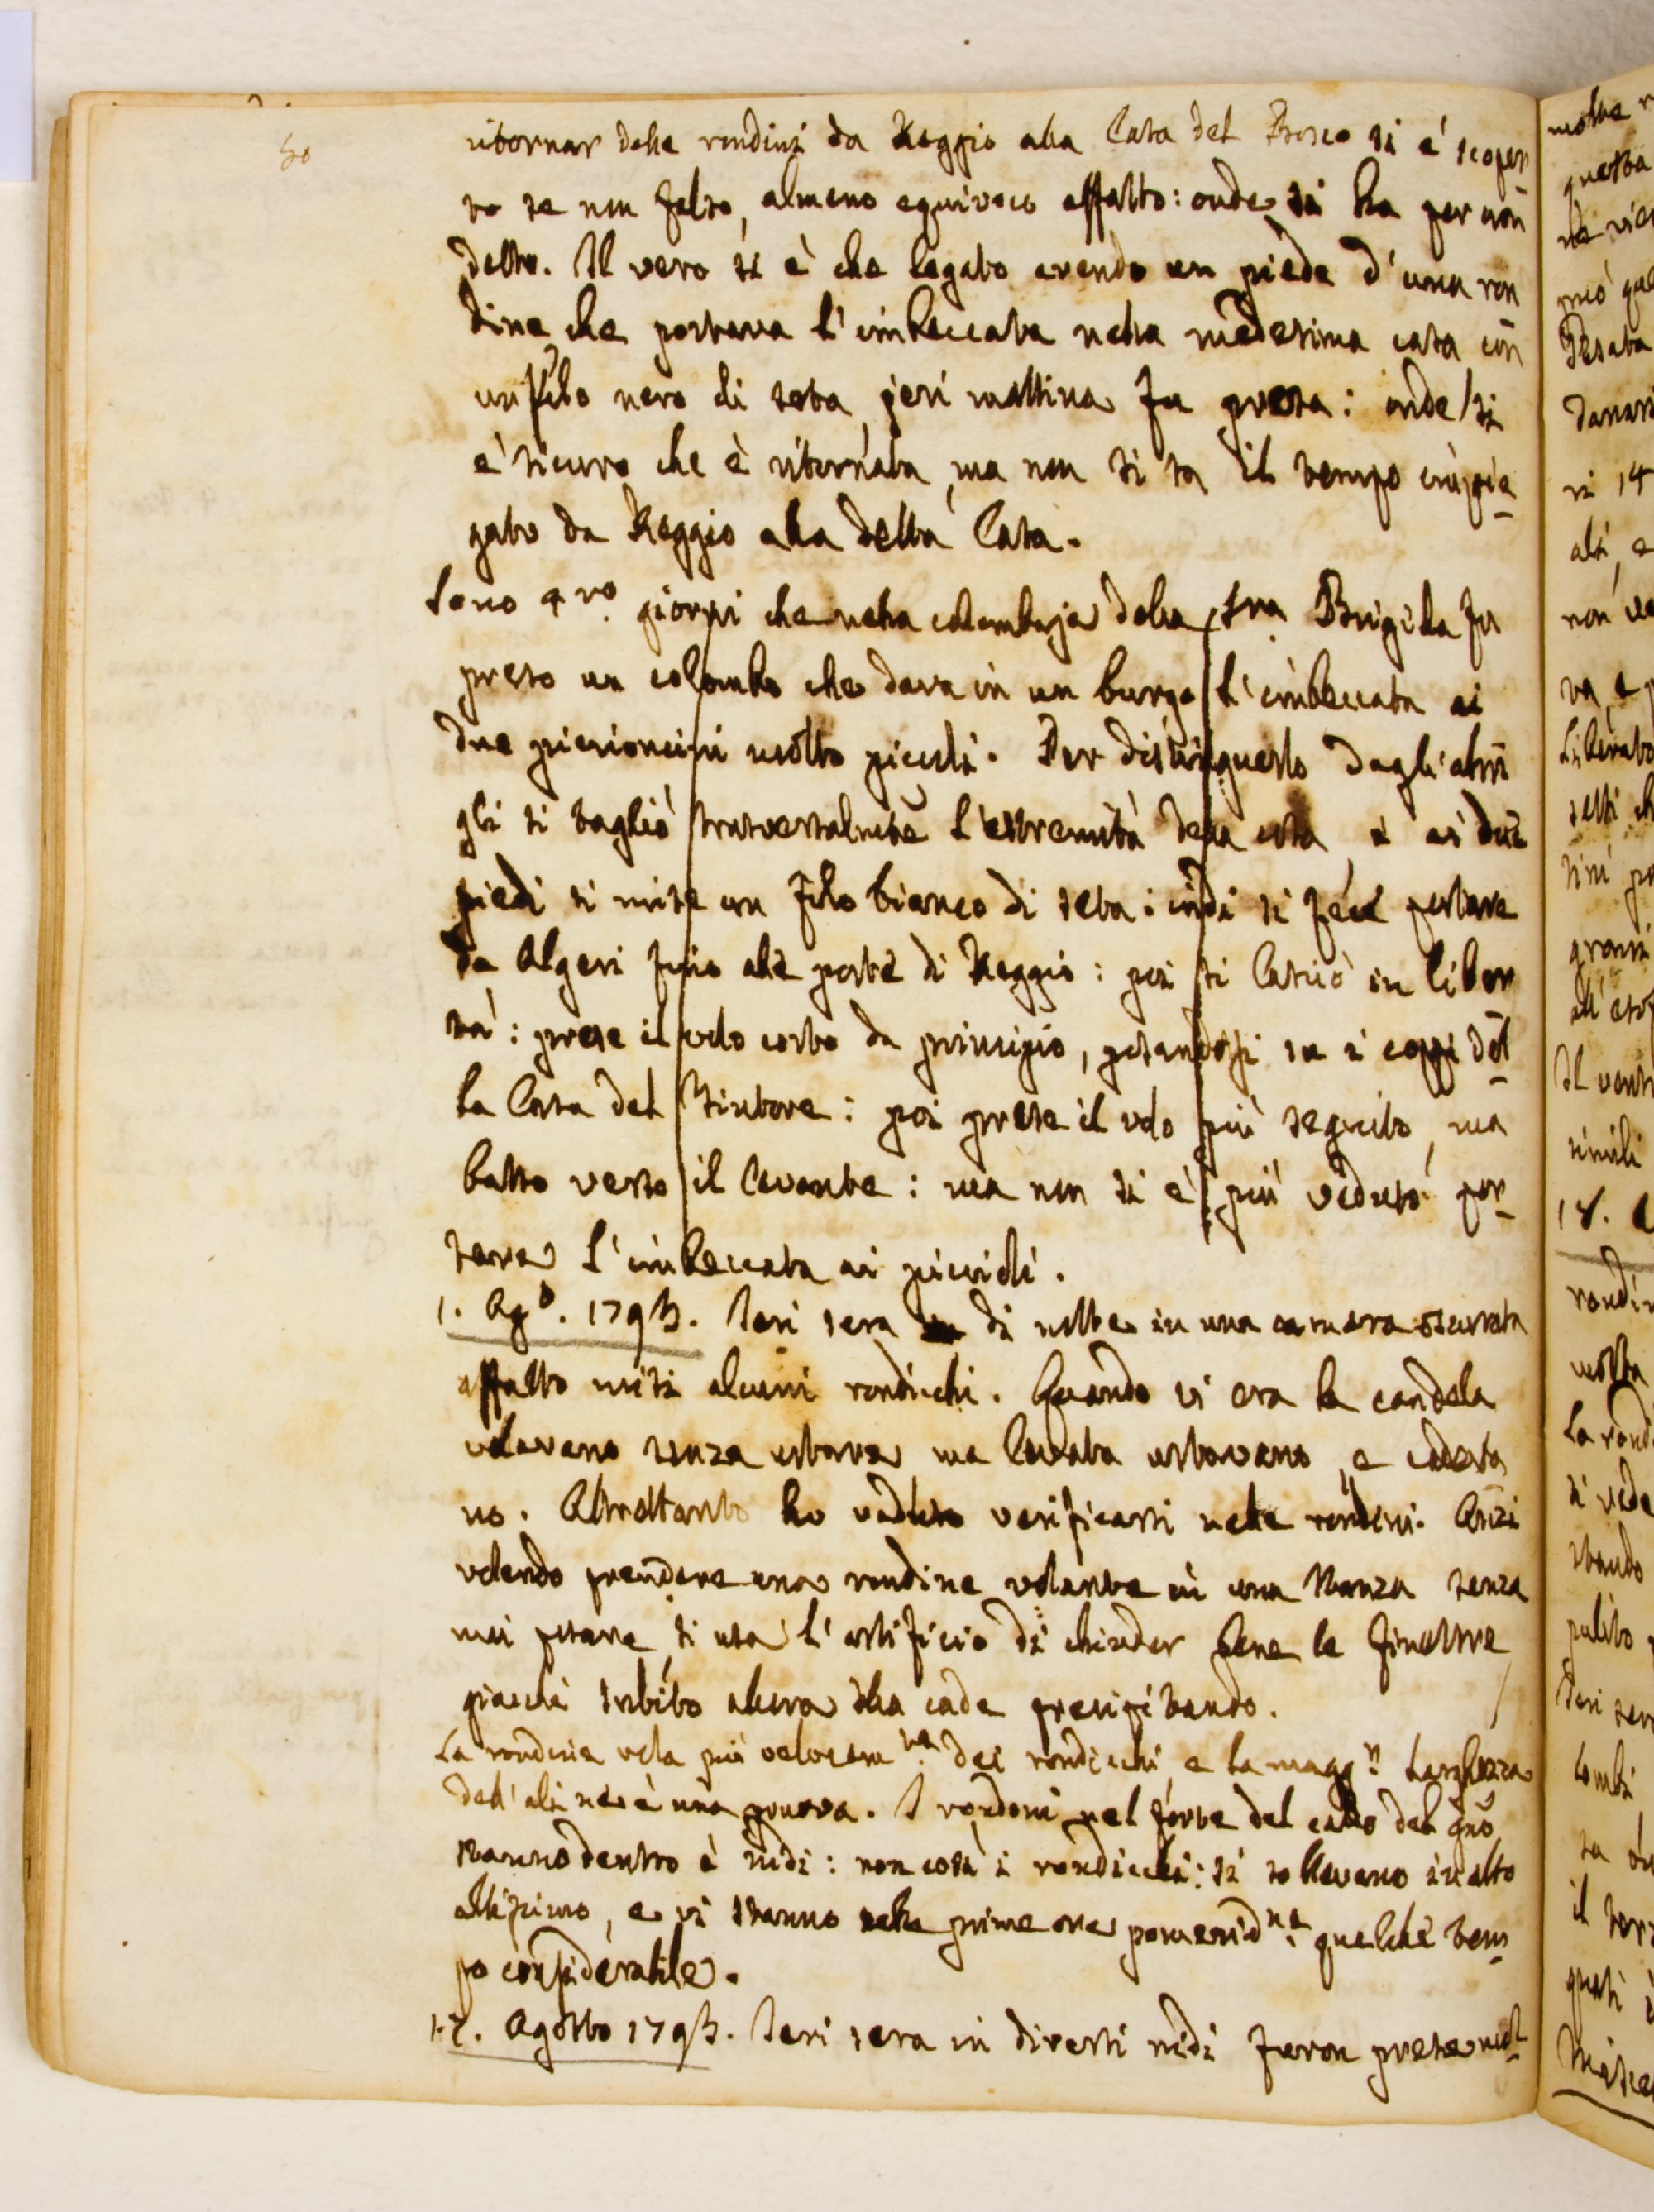 50
ritornar delle rondini da Reggio alla Casa del Bosco si è scoper
to se non falso, almeno equivoco affatto: onde si ha per non
detto. Il vero si è che legato avendo un piede d'una ron
dine che portava l'imbeccata nella medesima casa con
un filo nero di seta jeri mattina fu presa: onde si
è sicuro che è ritornata, ma non si sa il tempo impie
gato da Reggio alla detta Casa.
Sono 4ro. giorni che nella colombaja della Sra Brigida fu
preso un colombo che dava in un burgo l'imbeccata ai
due piccioncini molto piccoli. Per distinguerlo dagli altri
gli si tagliò trasversalmte l'estremità della coda, e ai due
piedi si mise un filo bianco di seta: indi si fece portare
da Algeri fino alle porte di Reggio: poi si lasciò in liber
tà: prese il volo corto da principio, posandosi su i coppi del
la Casa del Tintore: poi prese il volo più seguito, ma
basso verso il levante: ma non si è più veduto por
tare l'imbeccata ai piccioli.
1. Ago. 1793. Jeri sera di notte in una camera oscurata
affatto misi alcuni rondicchi. Quando vi era la candela
volavano senza urtare ma levata urtavano, e cadeva
no. Altrettanto ho veduto verificarsi nelle rondini. Anzi
volendo prendere una rondine volante in una stanza senza
mai posare, si usa l'artificio di chiuder bene le finestre
giacchè subito allora ella cade precipitando.
La rondine vola più velocemte. dei rondicchi, e la maggr. larghezza
dell'ali ne è una prova. I rondoni nel forte del caldo del gno
stanno dentro è nidi: non così i rondicchi: si sollevano in alto
altissimo, e vi stanno nelle prime ore pomeridne. qualche tem
po considerabile.
17. Agosto 1793. Jeri sera in diversi nidi furon prese mol